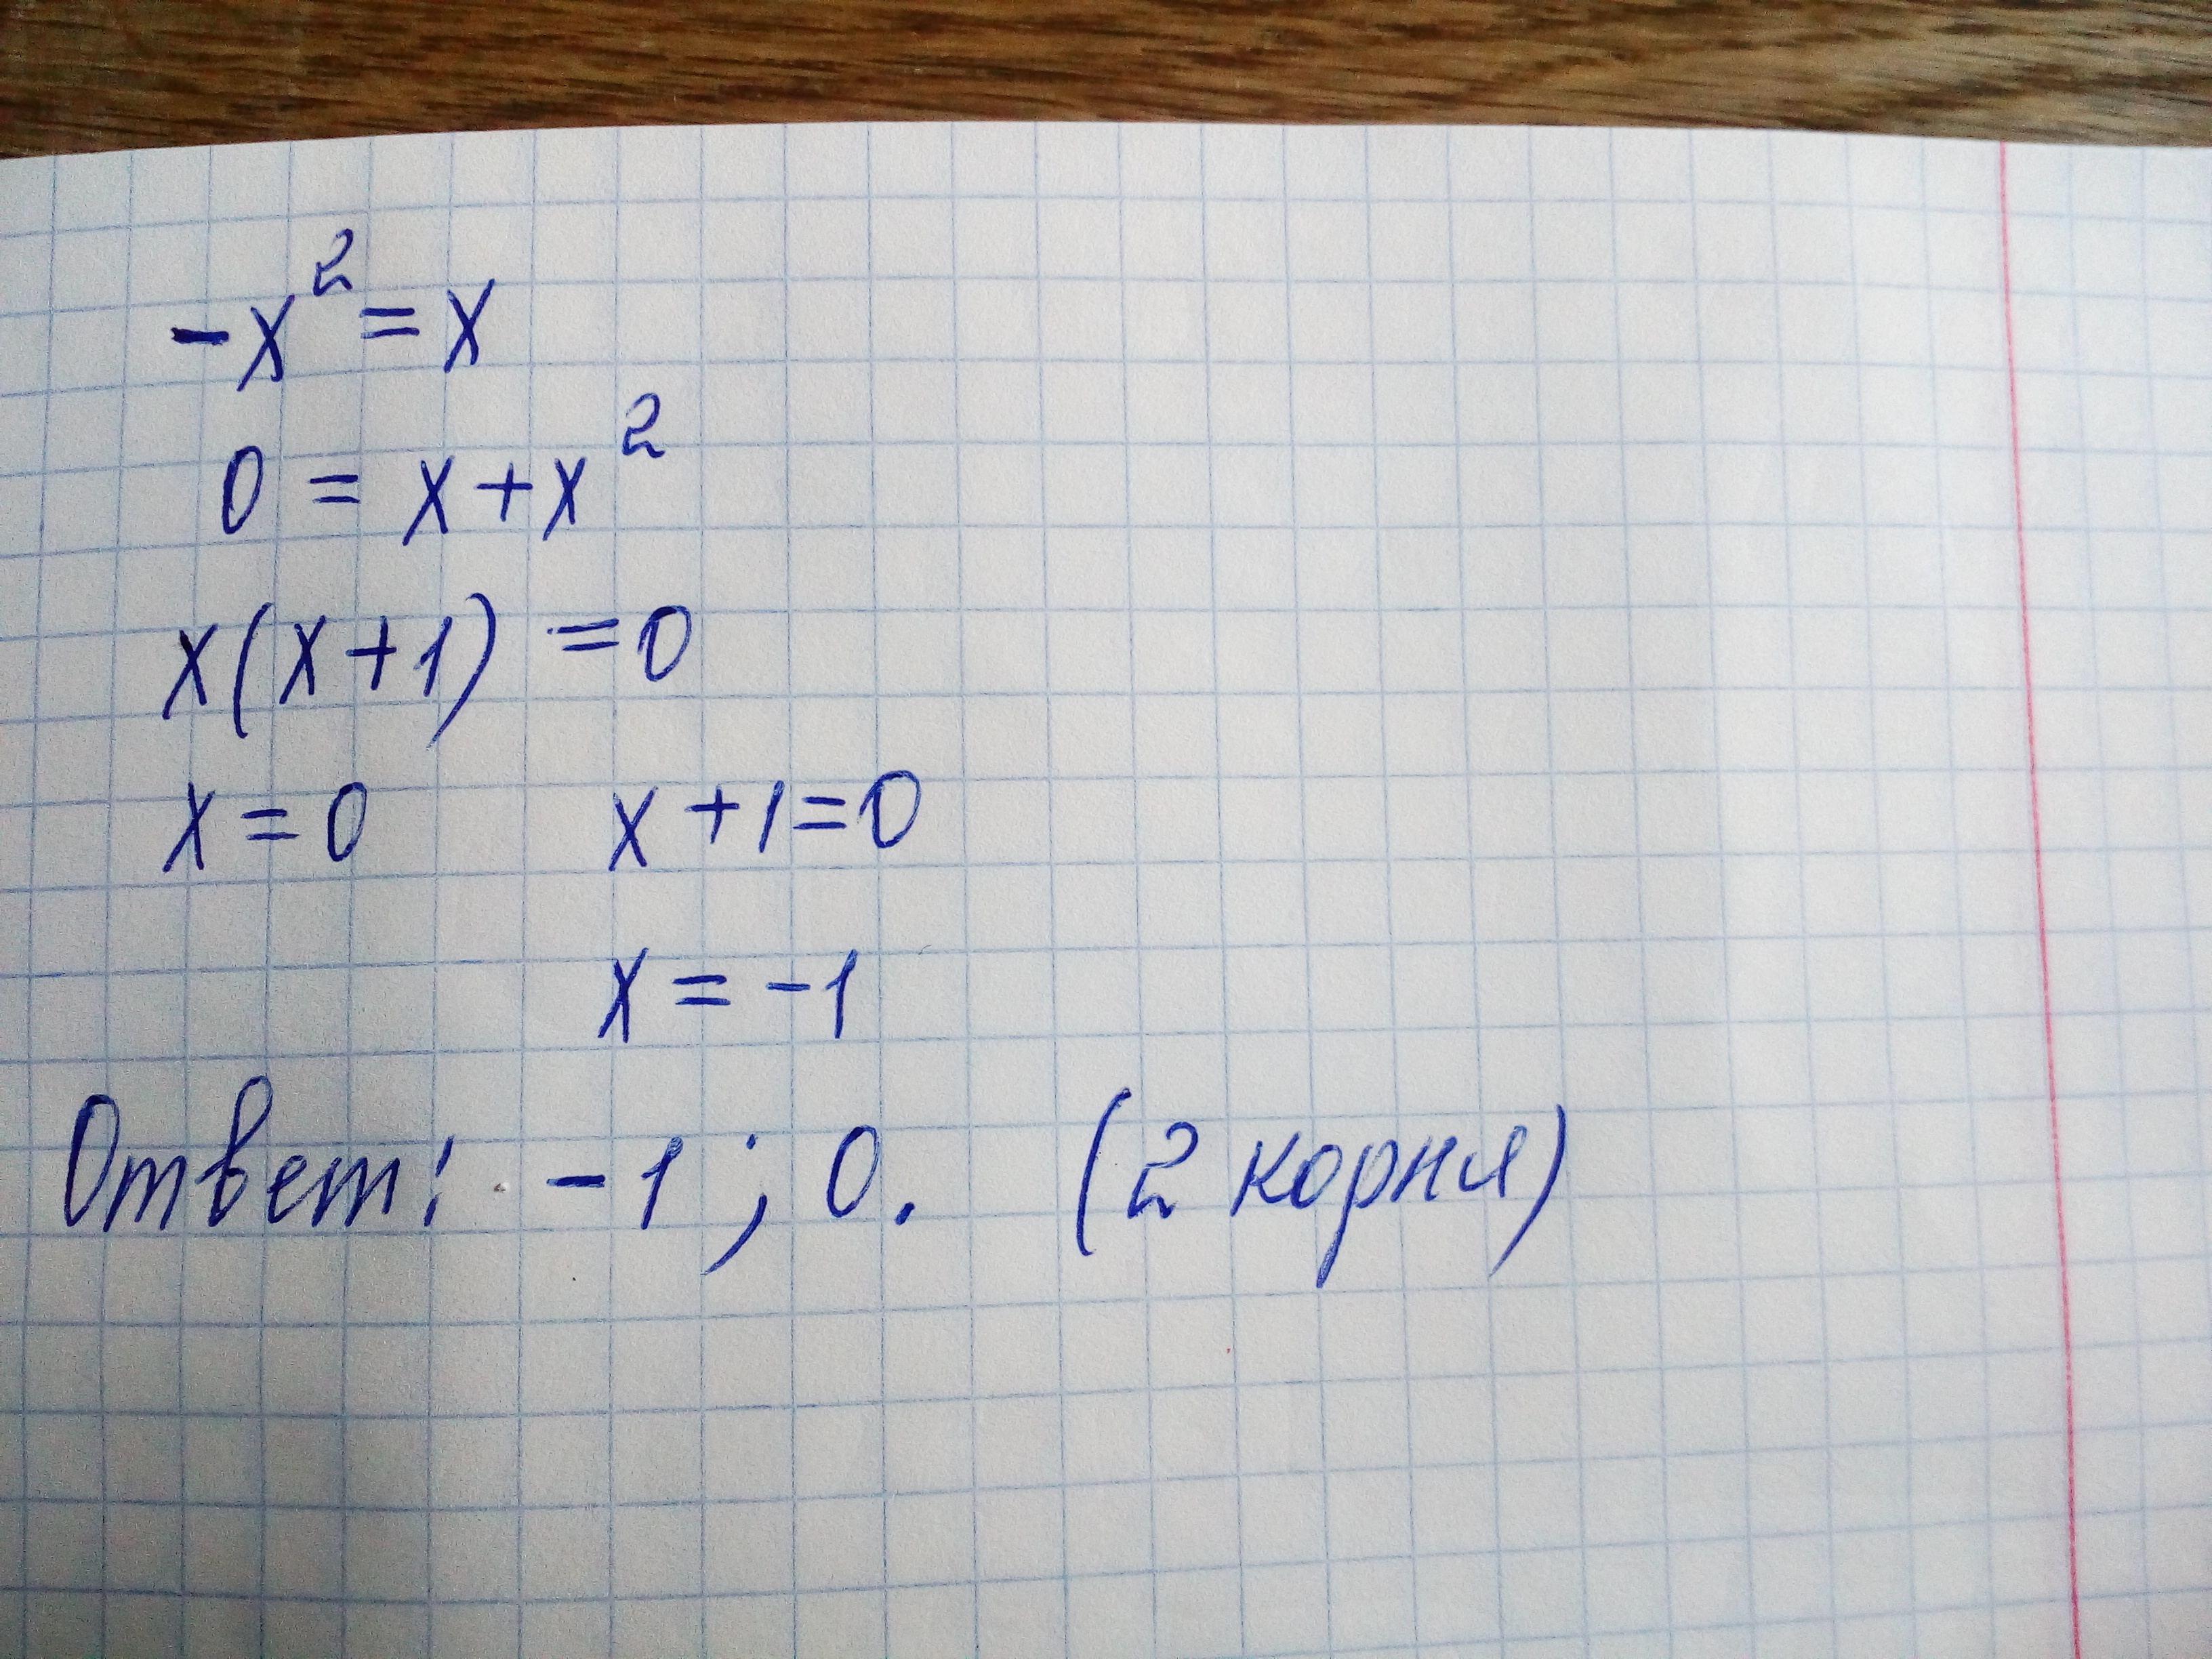 -x² = x
0 = x + x²
x(x+1) = 0
x = 0 x + 1 = 0
x = -1
Ответ: -1; 0. (2 корня)